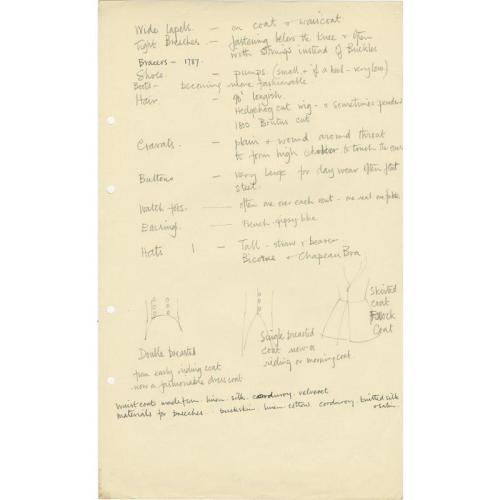 Wide lapels. — on coat & waiscoat
Tight Breeches — fastening below the knee & often
with strings instead of Buckles
Bracers - 1787.
Shoes — pumps. (small, + if a heel - very low)
Boots - becoming more fashionable
Hair — 90° longish.
Hedgehog cut wig - & sometimes powder
1800 Brutus cut
Cravats. — plain & wound around throat
to form high choker to touch the ears
Buttons — very large for day wear often flat
steel.
Watch fobs. — often one over each coat - one real one false
Earrings — French gipsy like
Hats — Tall - straw & beaver
Bicorne & Chapeau Bra
Skirted
coat
Frock
Coat
Double breasted
from early riding coat
now a fashionable dress coat
Single breasted
coat now a
riding or morning coat.
waistcoats made from linen silk corduroy velvet
materials for breeches. buckskin linen cottons corduroy knitted silk
& satin.